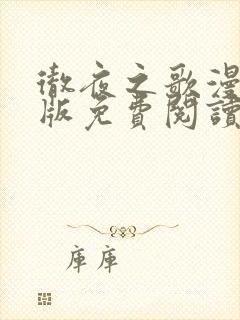 徹夜之歌漫
版免費閱讀
庫庫